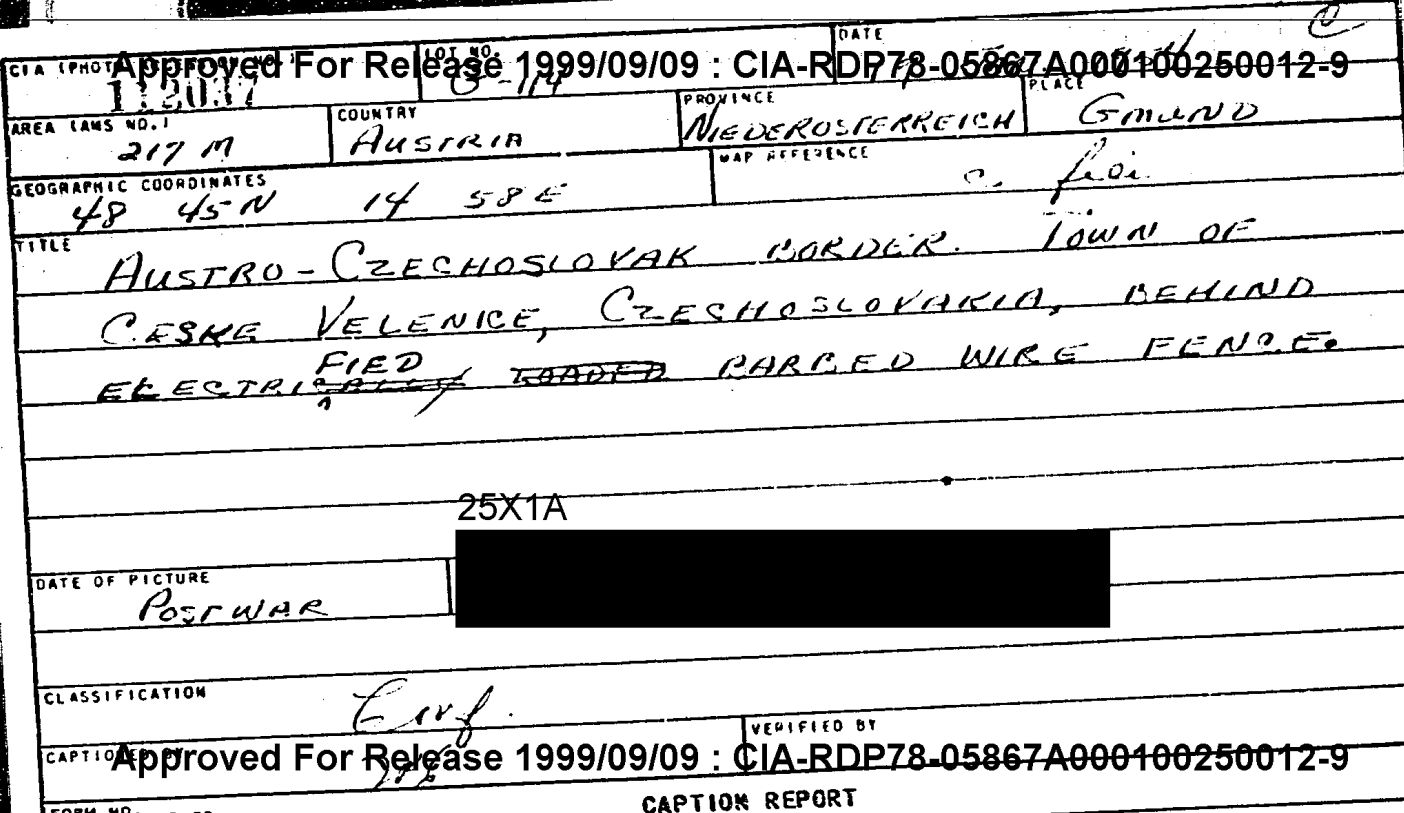 DATE
Approved For Release 1999/09/09 : CIA-RDP78-05867A000100250012-9
CIA (PHOTO
LOT NO.
AREA (AMS NO.)
217 M
COUNTRY
AUSTRIA
PROVINCE
NIEDEROSTERREICH
PLACE
GMUND
GEOGRAPHIC COORDINATES
48 45N 14 58E
MAP REFERENCE
TITLE
AUSTRO-CZECHOSLOVAK BORDER. TOWN OF
CESKE VELENICE, CZECHOSLOVAKIA, BEHIND
FIED
ELECTRICALLY LOADED BARBED WIRE FENCE.
25X1A
DATE OF PICTURE
POSTWAR
CLASSIFICATION
VERIFIED BY
CAPTIONED BY
Approved For Release 1999/09/09 : CIA-RDP78-05867A000100250012-9
CAPTION REPORT
FORM NO.